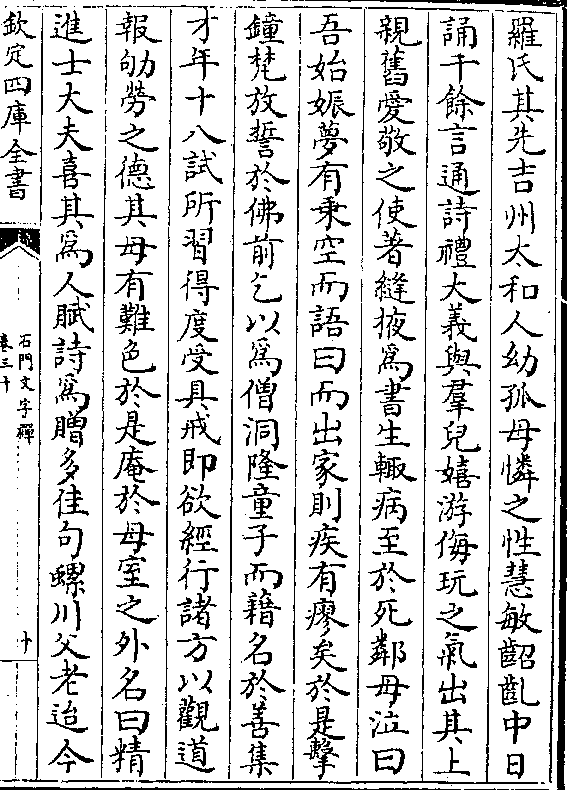 羅氏其先吉州太和人幼孤母憐之性慧敏齠齓中日
誦千餘言通詩禮大義與羣兒嬉游侮玩之氣出其上
親舊愛敬之使著縫掖為書生輙病至於死鄰母泣曰
吾始娠夢有乗空而語曰而出家則疾有瘳矣於是擊
鐘梵放誓於佛前乞以為僧洞隆童子而籍名於善集
才年十八試所習得度受具戒即欲經行諸方以觀道
報劬勞之德其母有難色於是庵於母室之外名曰精
進士大夫喜其為人賦詩為贈多佳句螺川父老迨今
欽定四庫全書
石門文字禪
卷三十
十